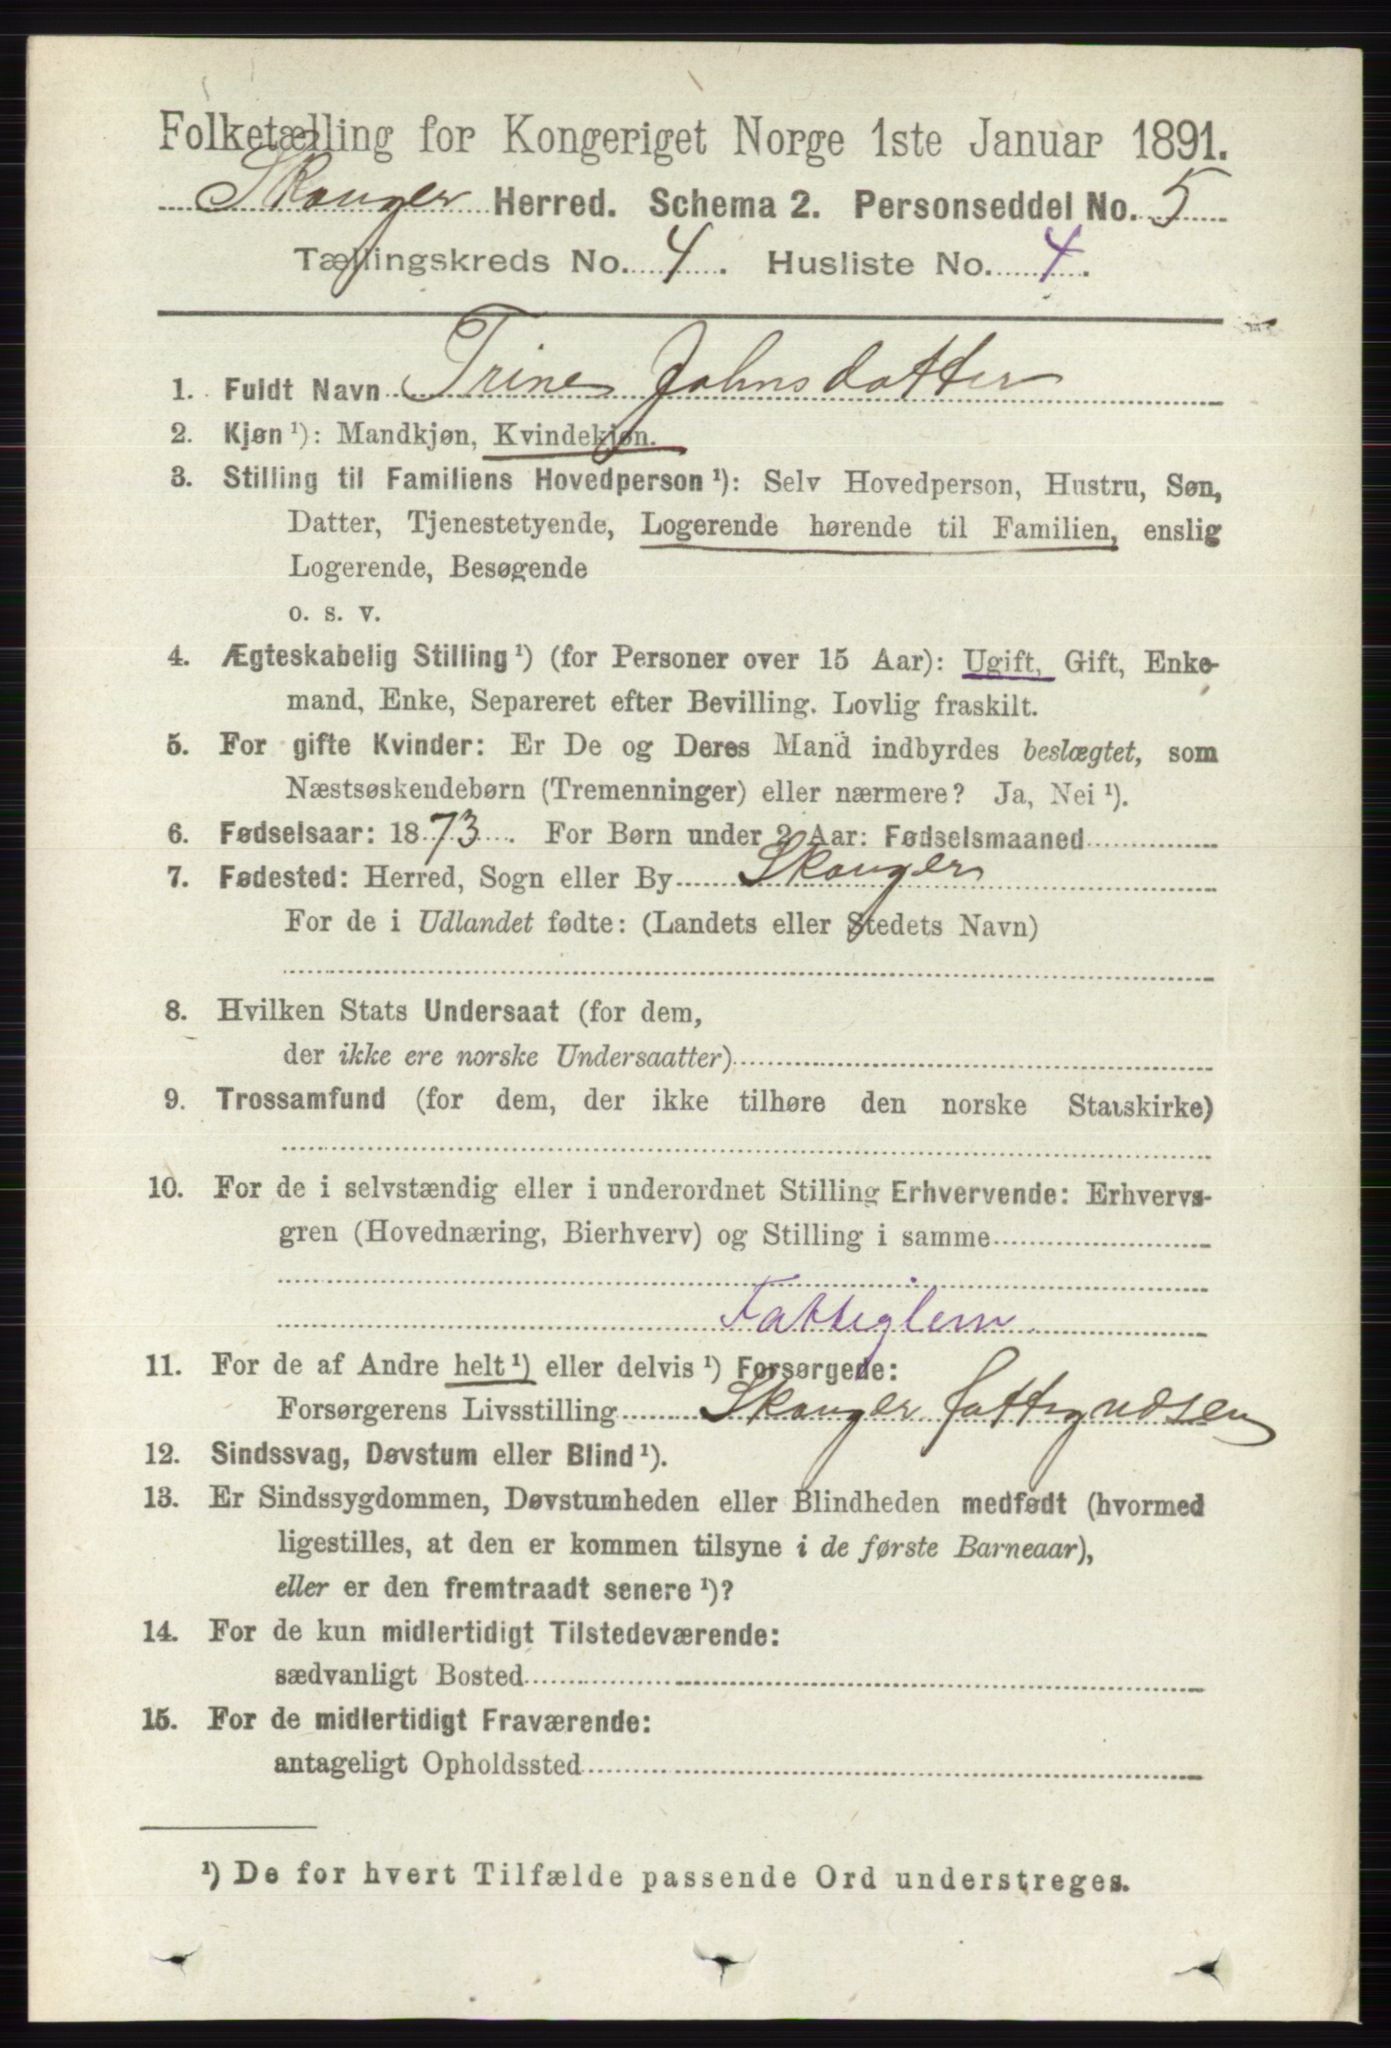 Folketælling for Kongeriget Norge 1ste Januar 1891.
Skouger Herred. Schema 2. Personseddel No. 5
Tællingskreds No. 4. Husliste No. 4.
1. Fuldt Navn Trine Johnsdatter
2. Kjøn ¹): Mandkjøn, Kvindekjøn.
3. Stilling til Familiens Hovedperson ¹): Selv Hovedperson, Hustru, Søn,
Datter, Tjenestetyende, Logerende hørende til Familien, enslig
Logerende, Besøgende
o. s. v.
4. Ægteskabelig Stilling ¹) (for Personer over 15 Aar): Ugift, Gift, Enke-
mand, Enke, Separeret efter Bevilling. Lovlig fraskilt.
5. For gifte Kvinder: Er De og Deres Mand indbyrdes beslægtet, som
Næstsøskendebørn (Tremenninger) eller nærmere? Ja, Nei ¹).
6. Fødselsaar: 1873. For Børn under 2 Aar: Fødselsmaaned
7. Fødested: Herred, Sogn eller By Skouger
For de i Udlandet fødte: (Landets eller Stedets Navn)
8. Hvilken Stats Undersaat (for dem,
der ikke ere norske Undersaatter)
9. Trossamfund (for dem, der ikke tilhøre den norske Statskirke)
10. For de i selvstændig eller i underordnet Stilling Erhvervende: Erhvervs-
gren (Hovednæring, Bierhverv) og Stilling i samme
Fattiglem
11. For de af Andre helt ¹) eller delvis ¹) Forsørgede:
Forsørgerens Livsstilling Skouger fattigvdsen
12. Sindssvag, Døvstum eller Blind ¹).
13. Er Sindssygdommen, Døvstumheden eller Blindheden medfødt (hvormed
ligestilles, at den er kommen tilsyne i de første Barneaar),
eller er den fremtraadt senere ¹)?
14. For de kun midlertidigt Tilstedeværende:
sædvanligt Bosted
15. For de midlertidigt Fraværende:
antageligt Opholdssted
¹) De for hvert Tilfælde passende Ord understreges.